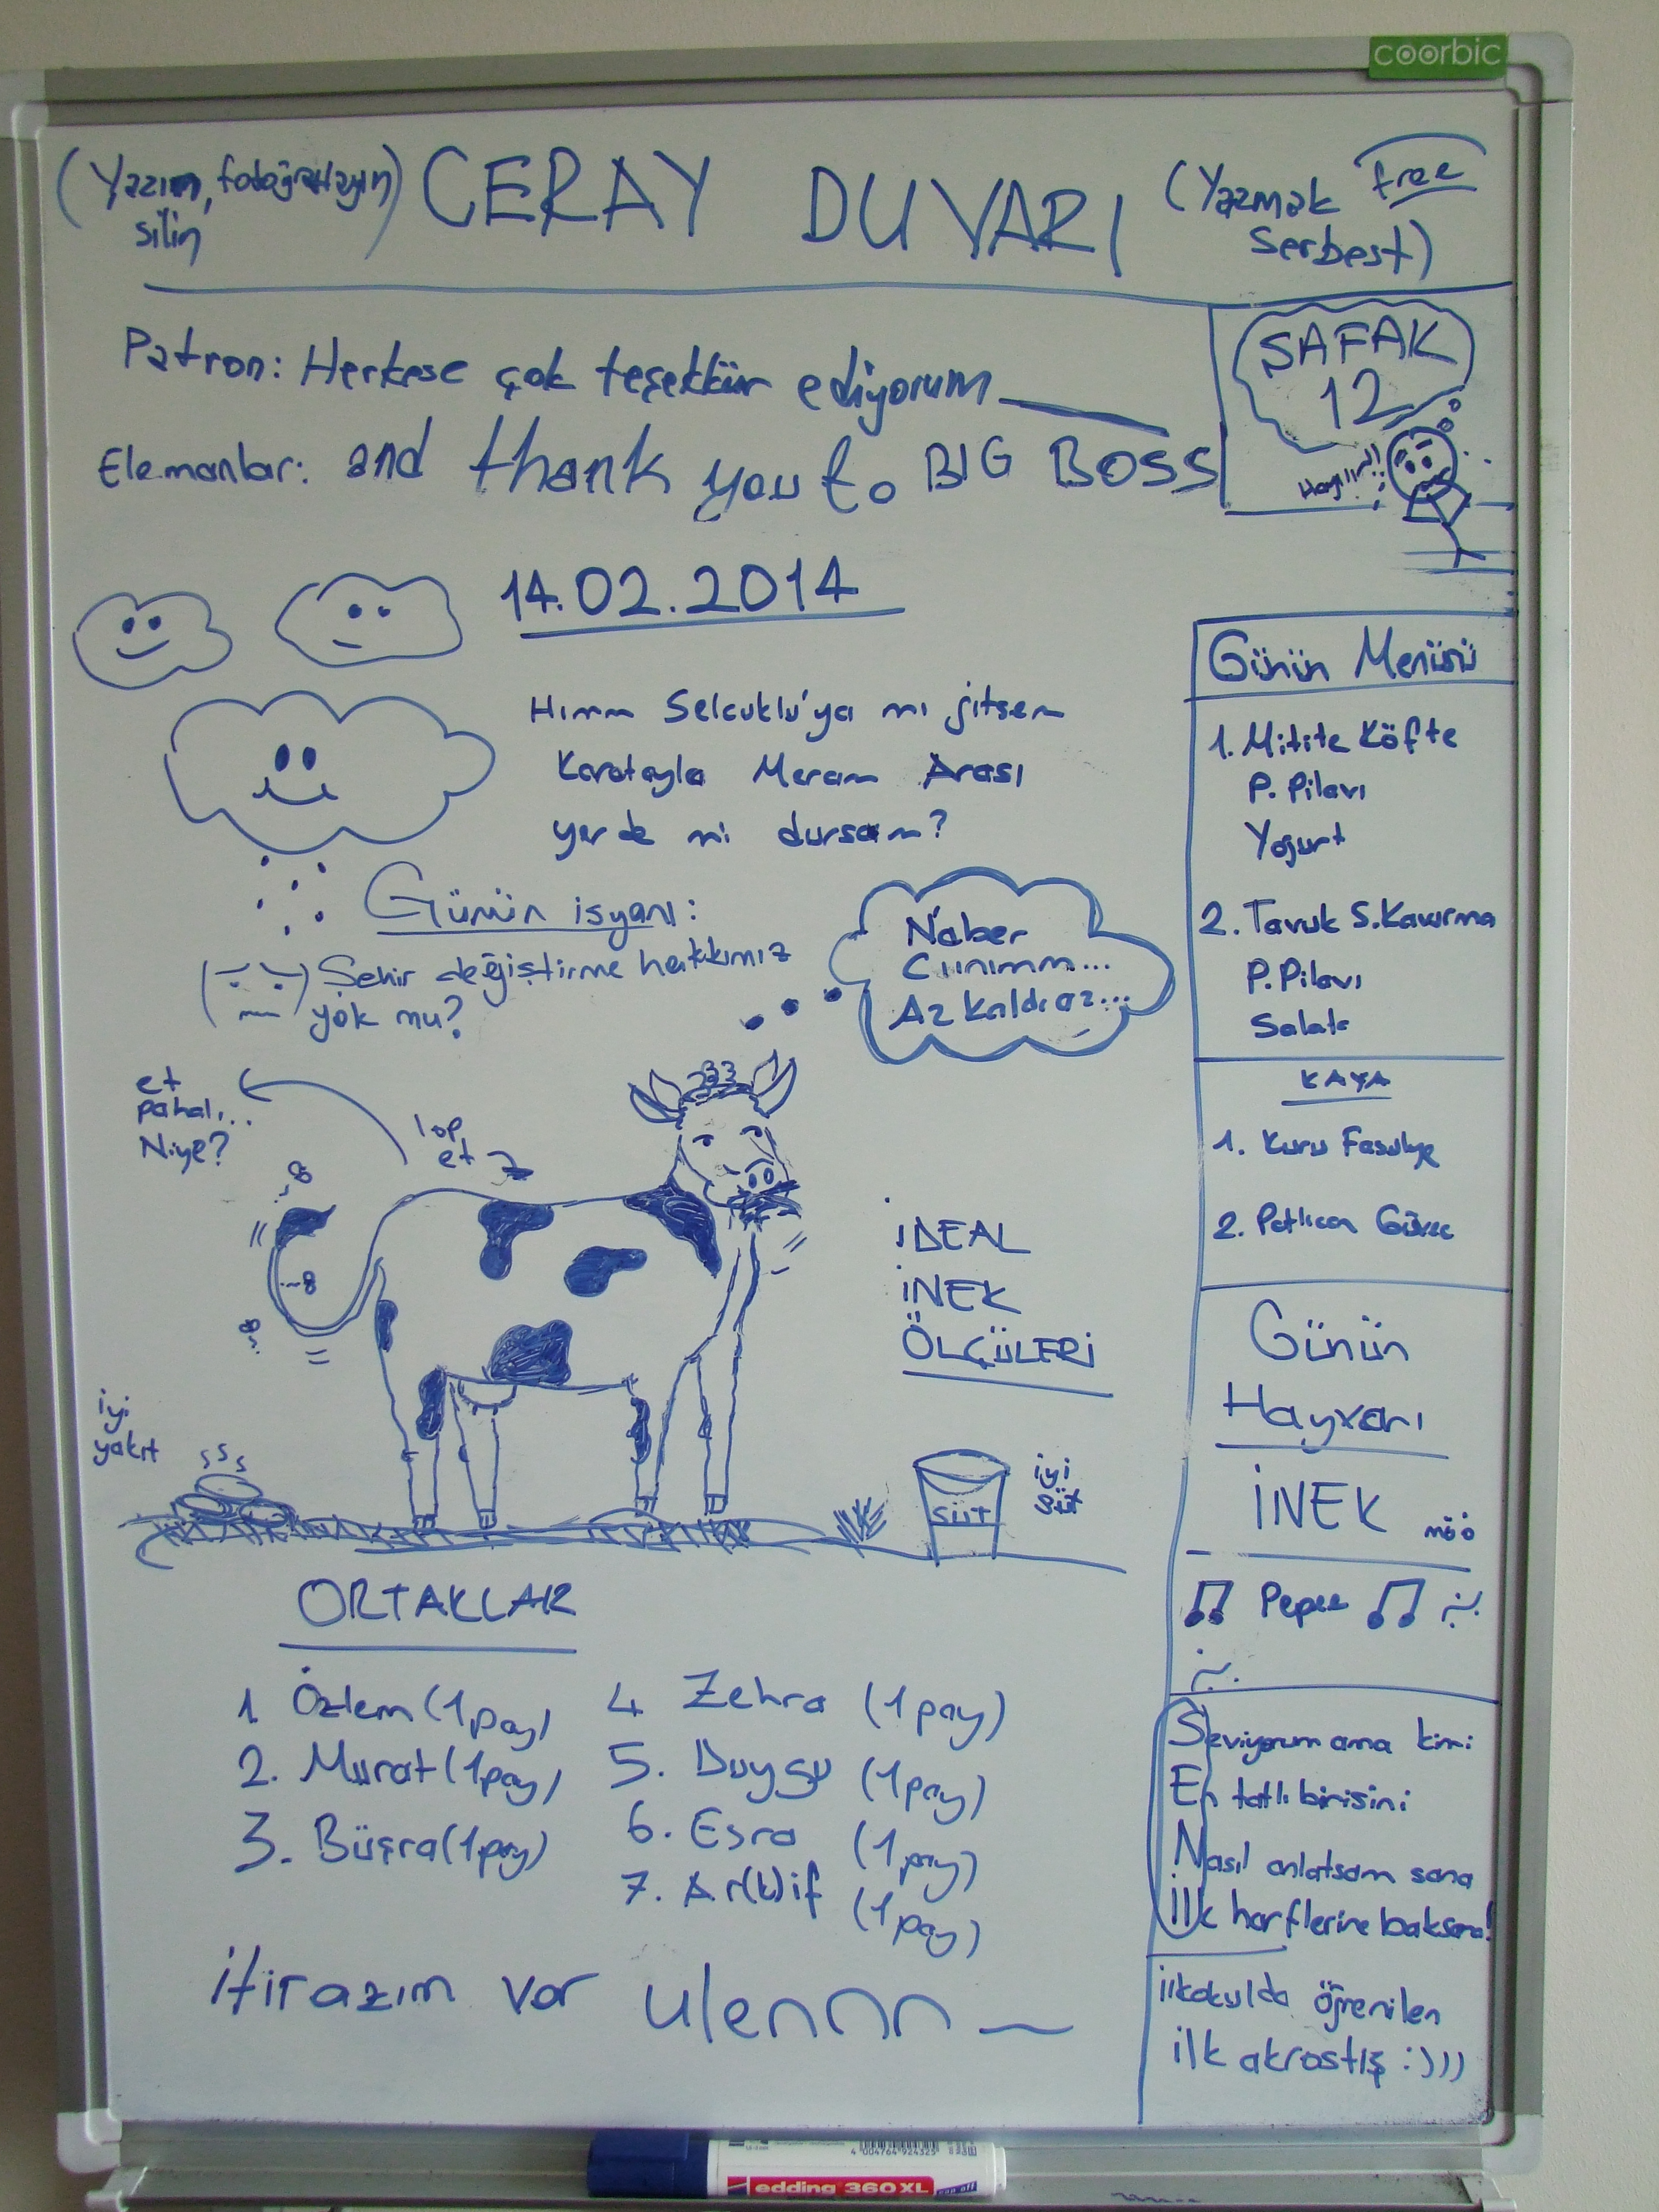 coorbic
(Yazın, fotoğraflayın
silin)
CERAY DUVARI
(Yazmak free
serbest)
Patron: Herkese çok teşekkür ediyorum
Elemanlar: and thank you to BIG BOSS
ŞAFAK
12
14.02.2014
Hımm Selcuklu'ya mı gitsem
Karatayla Meram Arası
yerde mi dursam?
Günün isyanı:
Şehir değiştirme hakkımız
yok mu?
N'aber
Ciınımm...
Az kaldı az...
et
pahalı...
Niye?
lop
et
İDEAL
İNEK
ÖLÇÜLERİ
iyi
yakıt
SÜT
iyi
süt
ORTAKLAR
1 Özlem (1 pay)
2. Murat (1 pay)
3. Büşra (1 pay)
4 Zehra (1 pay)
5. Duygu (1 pay)
6. Esra (1 pay)
7. Ar(k)if (1 pay)
itirazım var ulennnn
Günün Menüsü
1. Mitite Köfte
P. Pilavı
Yoğurt
2. Tavuk S. Kavurma
P. Pilavı
Salata
KAYA
1. Kuru Fasulye
2. Patlıcan Güveç
Günün
Hayvanı
İNEK möö
Pepee
Seviyorum ama kimi
En tatlı birisini
Nasıl anlatsam sana
İlk harflerine baksana!
ilkokulda öğrenilen
ilk akrostiş :)))
4 004764 924325
edding 360XL cap off